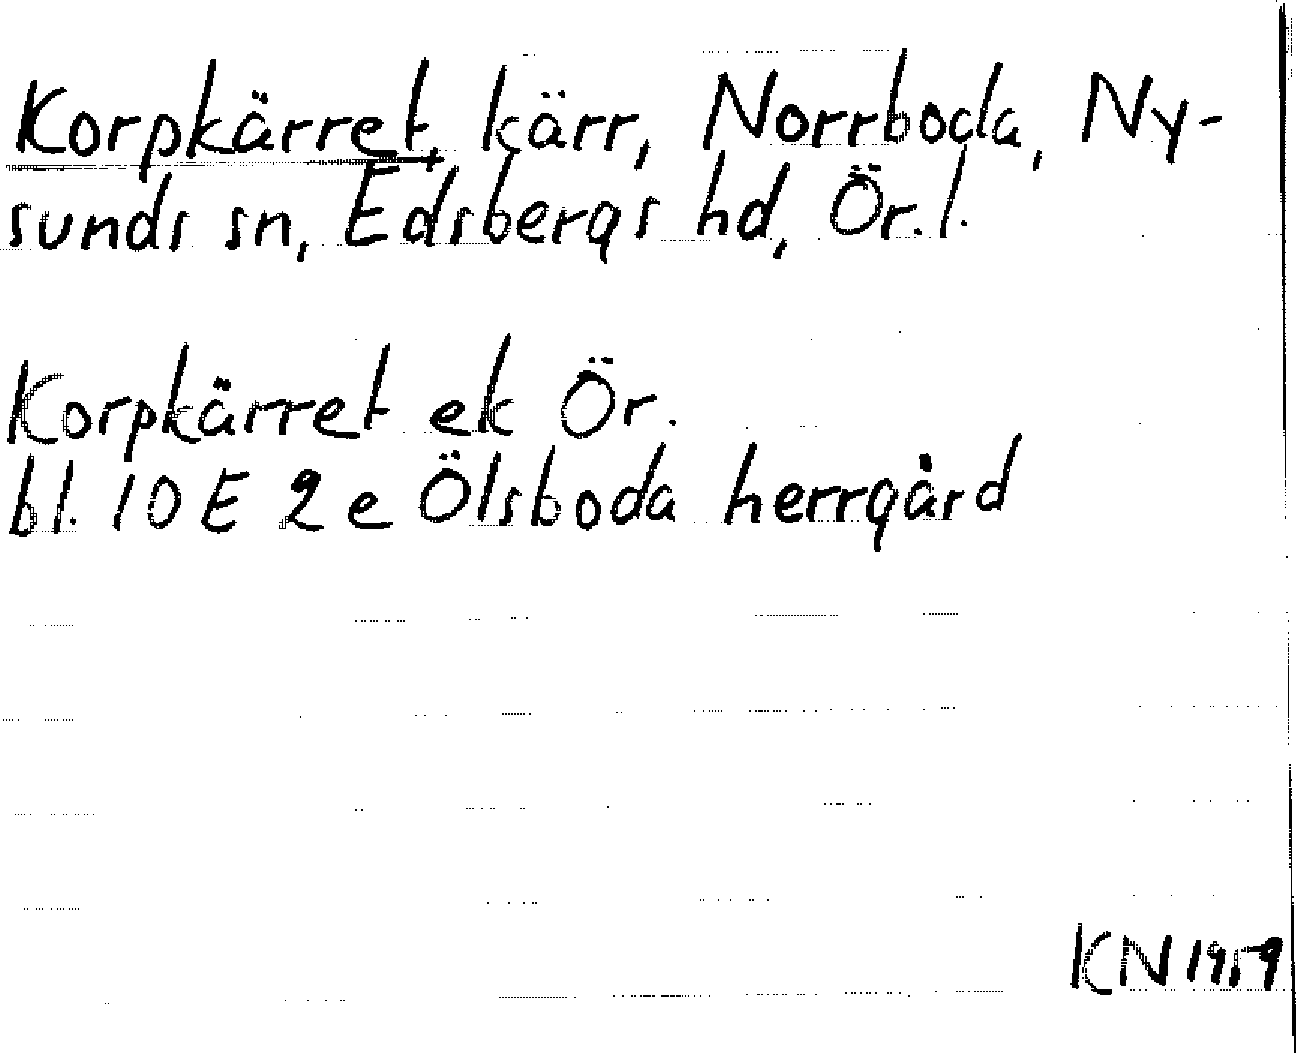 Korpkärret, kärr, Norrboda, Ny-
sunds sn, Edsbergs hd, Ör.l.
Korpkärret ek Ör.
bl. 10 E 2 e Ölsboda herrgård
KN 1959